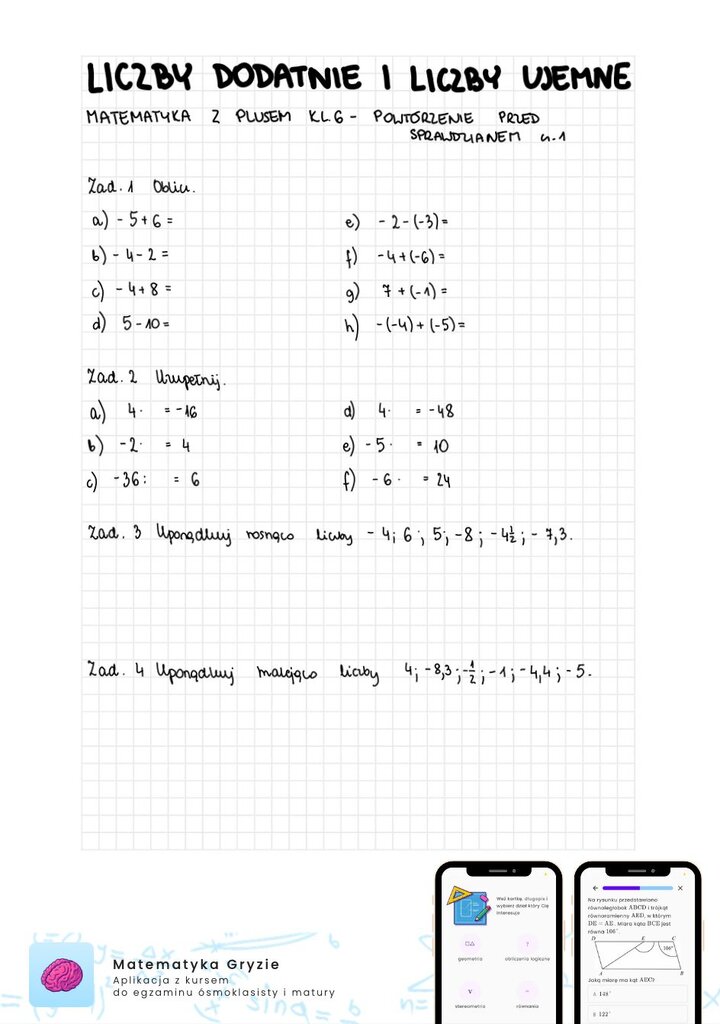 LICZBY DODATNIE I LICZBY UJEMNE
MATEMATYKA Z PLUSEM KL.6 - POWTÓRZENIE PRZED
SPRAWDZIANEM cz.1
Zad. 1 Oblicz.
a) - 5 + 6 =
e) - 2 - (-3) =
b) - 4 - 2 =
f) -4 + (-6) =
c) - 4 + 8 =
g) 7 + (-1) =
d) 5 - 10 =
h) -(-4) + (-5) =
Zad. 2 Uzupełnij.
a) 4 · = -16
d) 4 · = -48
b) -2 · = 4
e) -5 · = 10
c) -36 : = 6
f) -6 · = 24
Zad. 3 Uporządkuj rosnąco liczby - 4; 6; 5; -8; -4½; - 7,3.
Zad. 4 Uporządkuj malejąco liczby 4; -8,3; -½; -1; -4,4; -5.
Matematyka Gryzie
Aplikacja z kursem
do egzaminu ósmoklasisty i matury
Weź kartkę, długopis i
wybierz dział który Cię
interesuje
geometria
obliczenia logiczne
stereometria
równania
Na rysunku przedstawiono
równoległobok ABCD i trójkąt
równoramienny AED, w którym
DE = AE. Miara kąta BCE jest
równa 106°.
D E C
106°
A B
Jaką miarę ma kąt AEC?
A 148°
B 122°